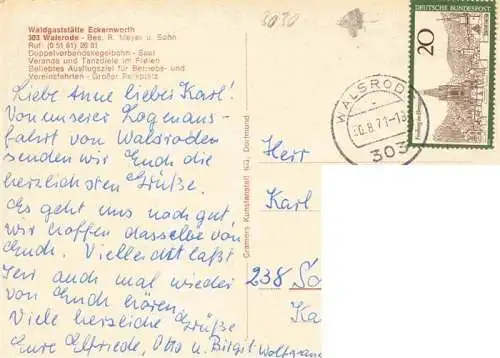 Waldgaststätte Eckernworth
303 Walsrode - Bes. R. Meyer u. Sohn
Ruf: (0 51 61) 26 81
Doppelverbandskegelbahn - Saal
Veranda und Tanzdiele im Freien
Beliebtes Ausflugsziel für Betriebs- und
Vereinsfahrten - Großer Parkplatz
3030
DEUTSCHE BUNDESPOST
20
WALSRODE
.8.71-1
303
Liebe Anne lieber Karl!
Von unserer Logenaus-
fahrt von Walsroden
senden wir Euch die
herzlichsten Grüße.
Es geht uns noch gut,
wir hoffen dasselbe von
Euch. Vielleicht laßt
Ihr auch mal wieder
von Euch hören.
Viele herzliche Grüße
Eure Elfriede, Otto u. Birgit
Cramers Kunstanstalt KG, Dortmund
Herr
Karl
238
Ka